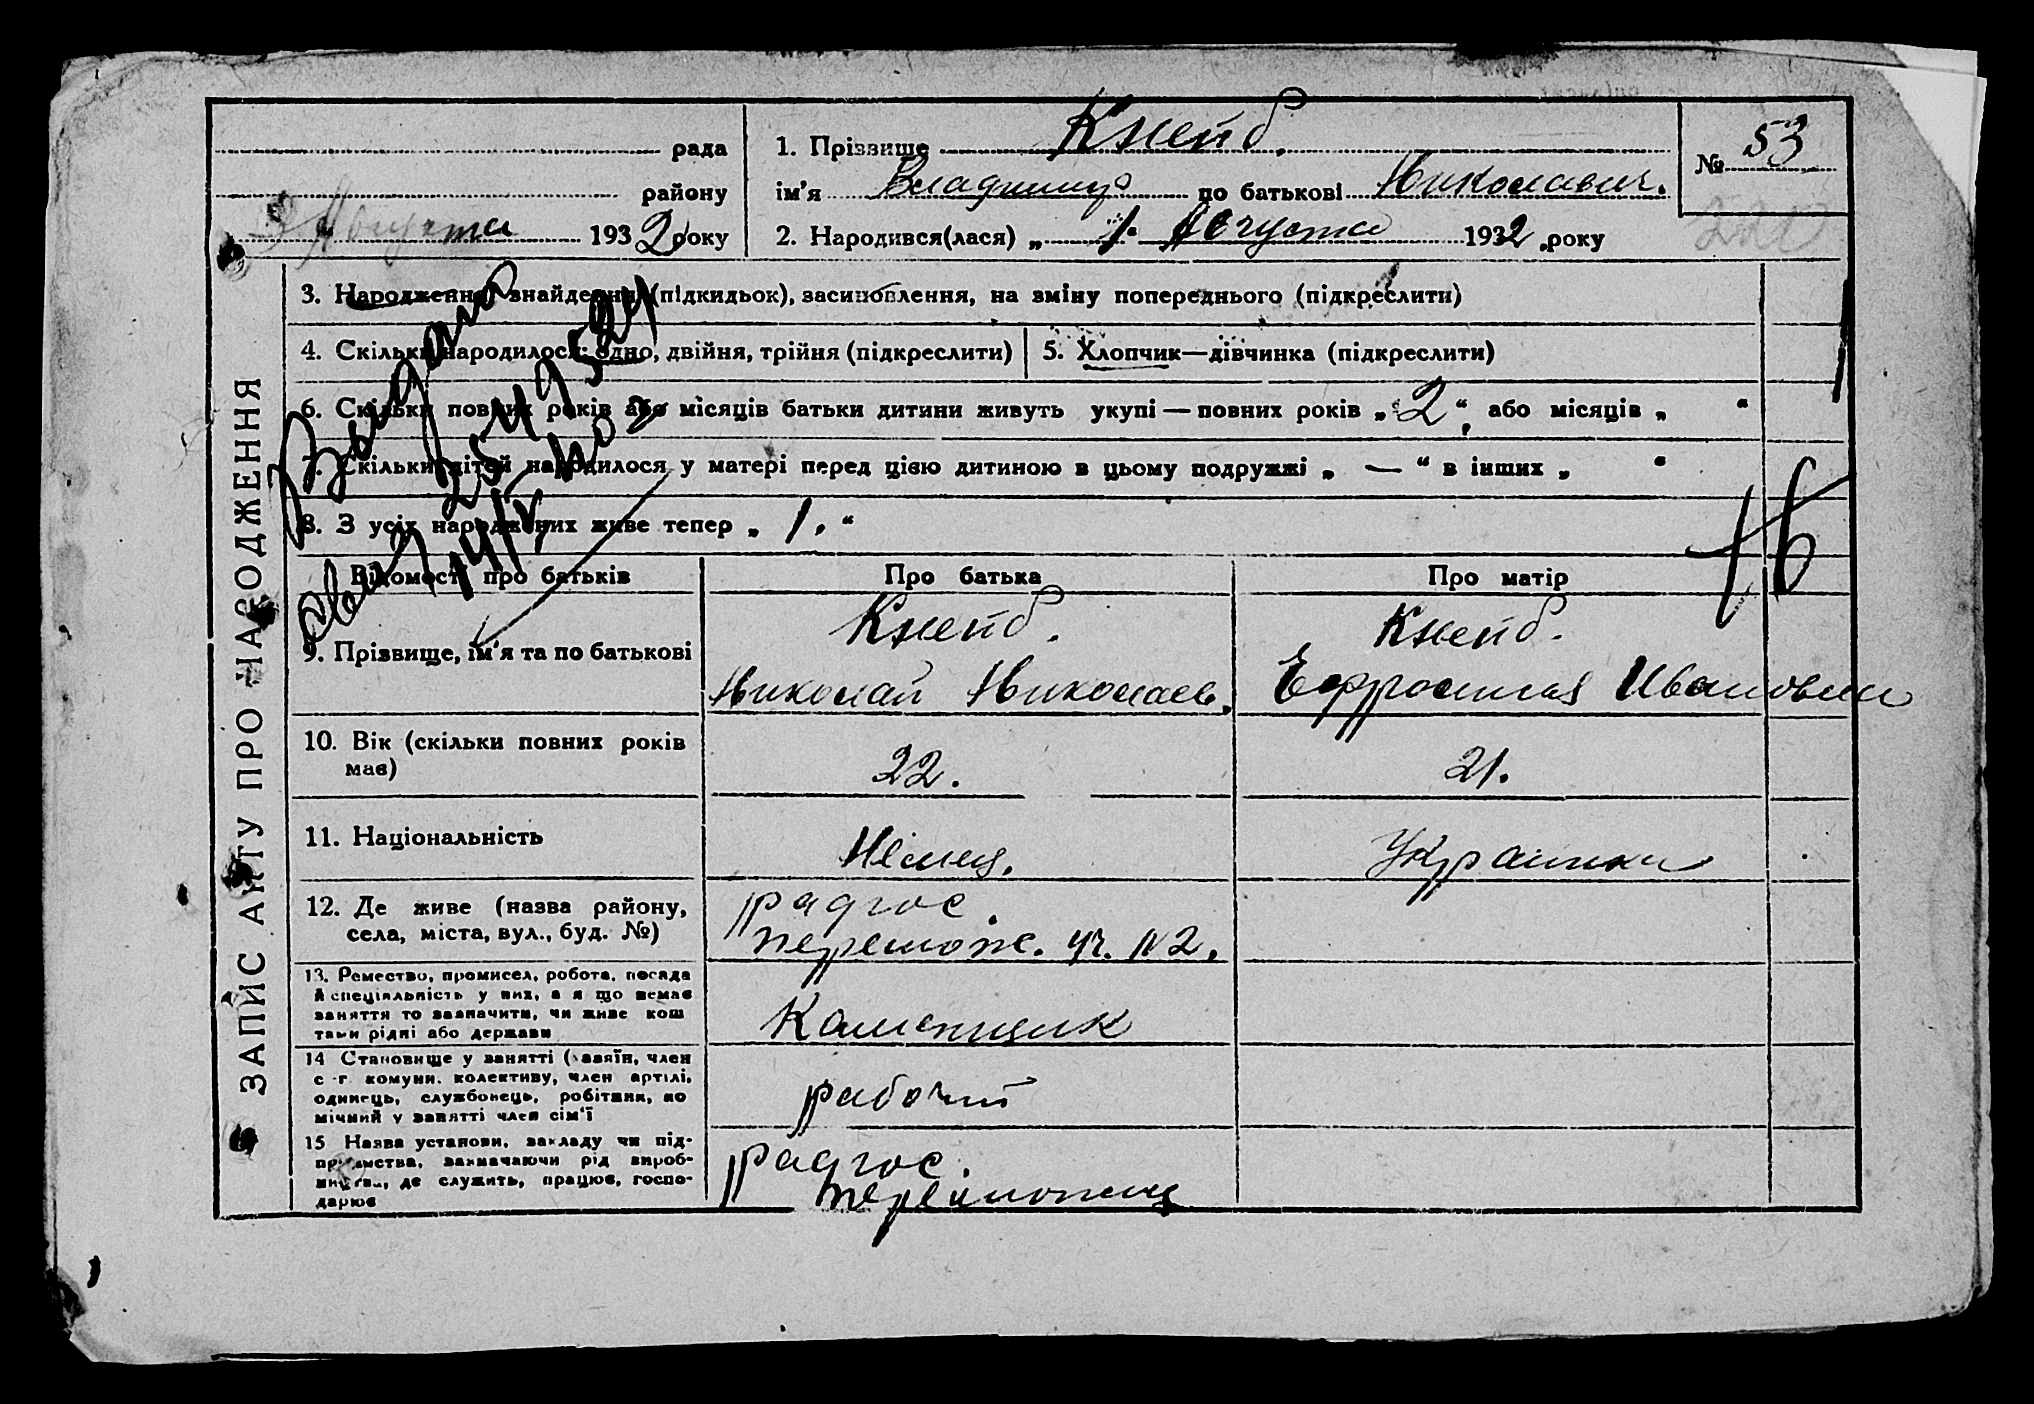 рада
району
3 Августа 1932 року
1. Прізвище Кнейб.
ім'я Владимир по батькові Николавич.
2. Народився(лася) „ 1. Августа 1932 року
№ 53
220
ЗАПИС АКТУ ПРО НАРОДЖЕННЯ
3. Народження, знайдення (підкидьок), засиновлення, на зміну попереднього (підкреслити)
4. Скільки народилося: одно, двійня, трійня (підкреслити)
5. Хлопчик—дівчинка (підкреслити)
6. Скільки повних років або місяців батьки дитини живуть укупі — повних років „ 2 “, або місяців „ “
7. Скільки дітей народилося у матері перед цією дитиною в цьому подружжі „ — “ в інших „ “
8. З усіх народжених живе тепер „ 1. “
Выдано
16
Відомості про батьків
Про батька
Про матір
9. Прізвище, ім'я та по батькові
Кнейб.
Николай Николаев.
Кнейб.
Ефросиния Ивановна
10. Вік (скільки повних років
має)
22.
21.
11. Національність
Німец.
Украинка
12. Де живе (назва району,
села, міста, вул., буд. №)
радгос.
перемож. уч. N2.
13. Ремество, промисел, робота, посада
й спеціяльність у них, а я що немає
заняття то зазначити, чи живе кош
тами рідні або держави
Каменщик
14 Становище у занятті (хазяїн, член
с.-г. комуни, колективу, член артілі,
одинець, службовець, робітник, по
мічний у занятті член сім'ї
рабочий
15 Назва установи, закладу чи під-
приємства, зазначаючи рід вироб-
ництва, де служить, працює, госпо-
дарює
радгос.
переможец